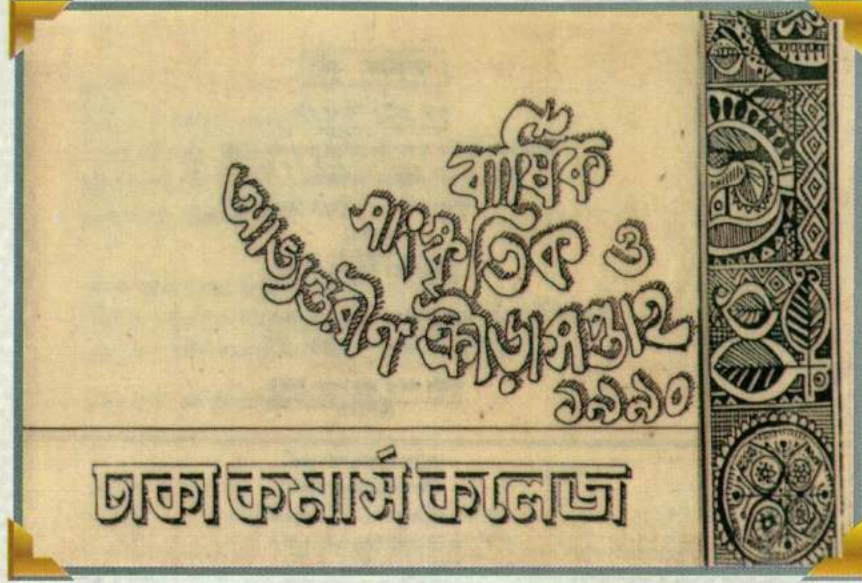 বার্ষিক
সাংস্কৃতিক ও
আভ্যন্তরীণ ক্রীড়াসপ্তাহ
১৯৯০
ঢাকা কমার্স কলেজ